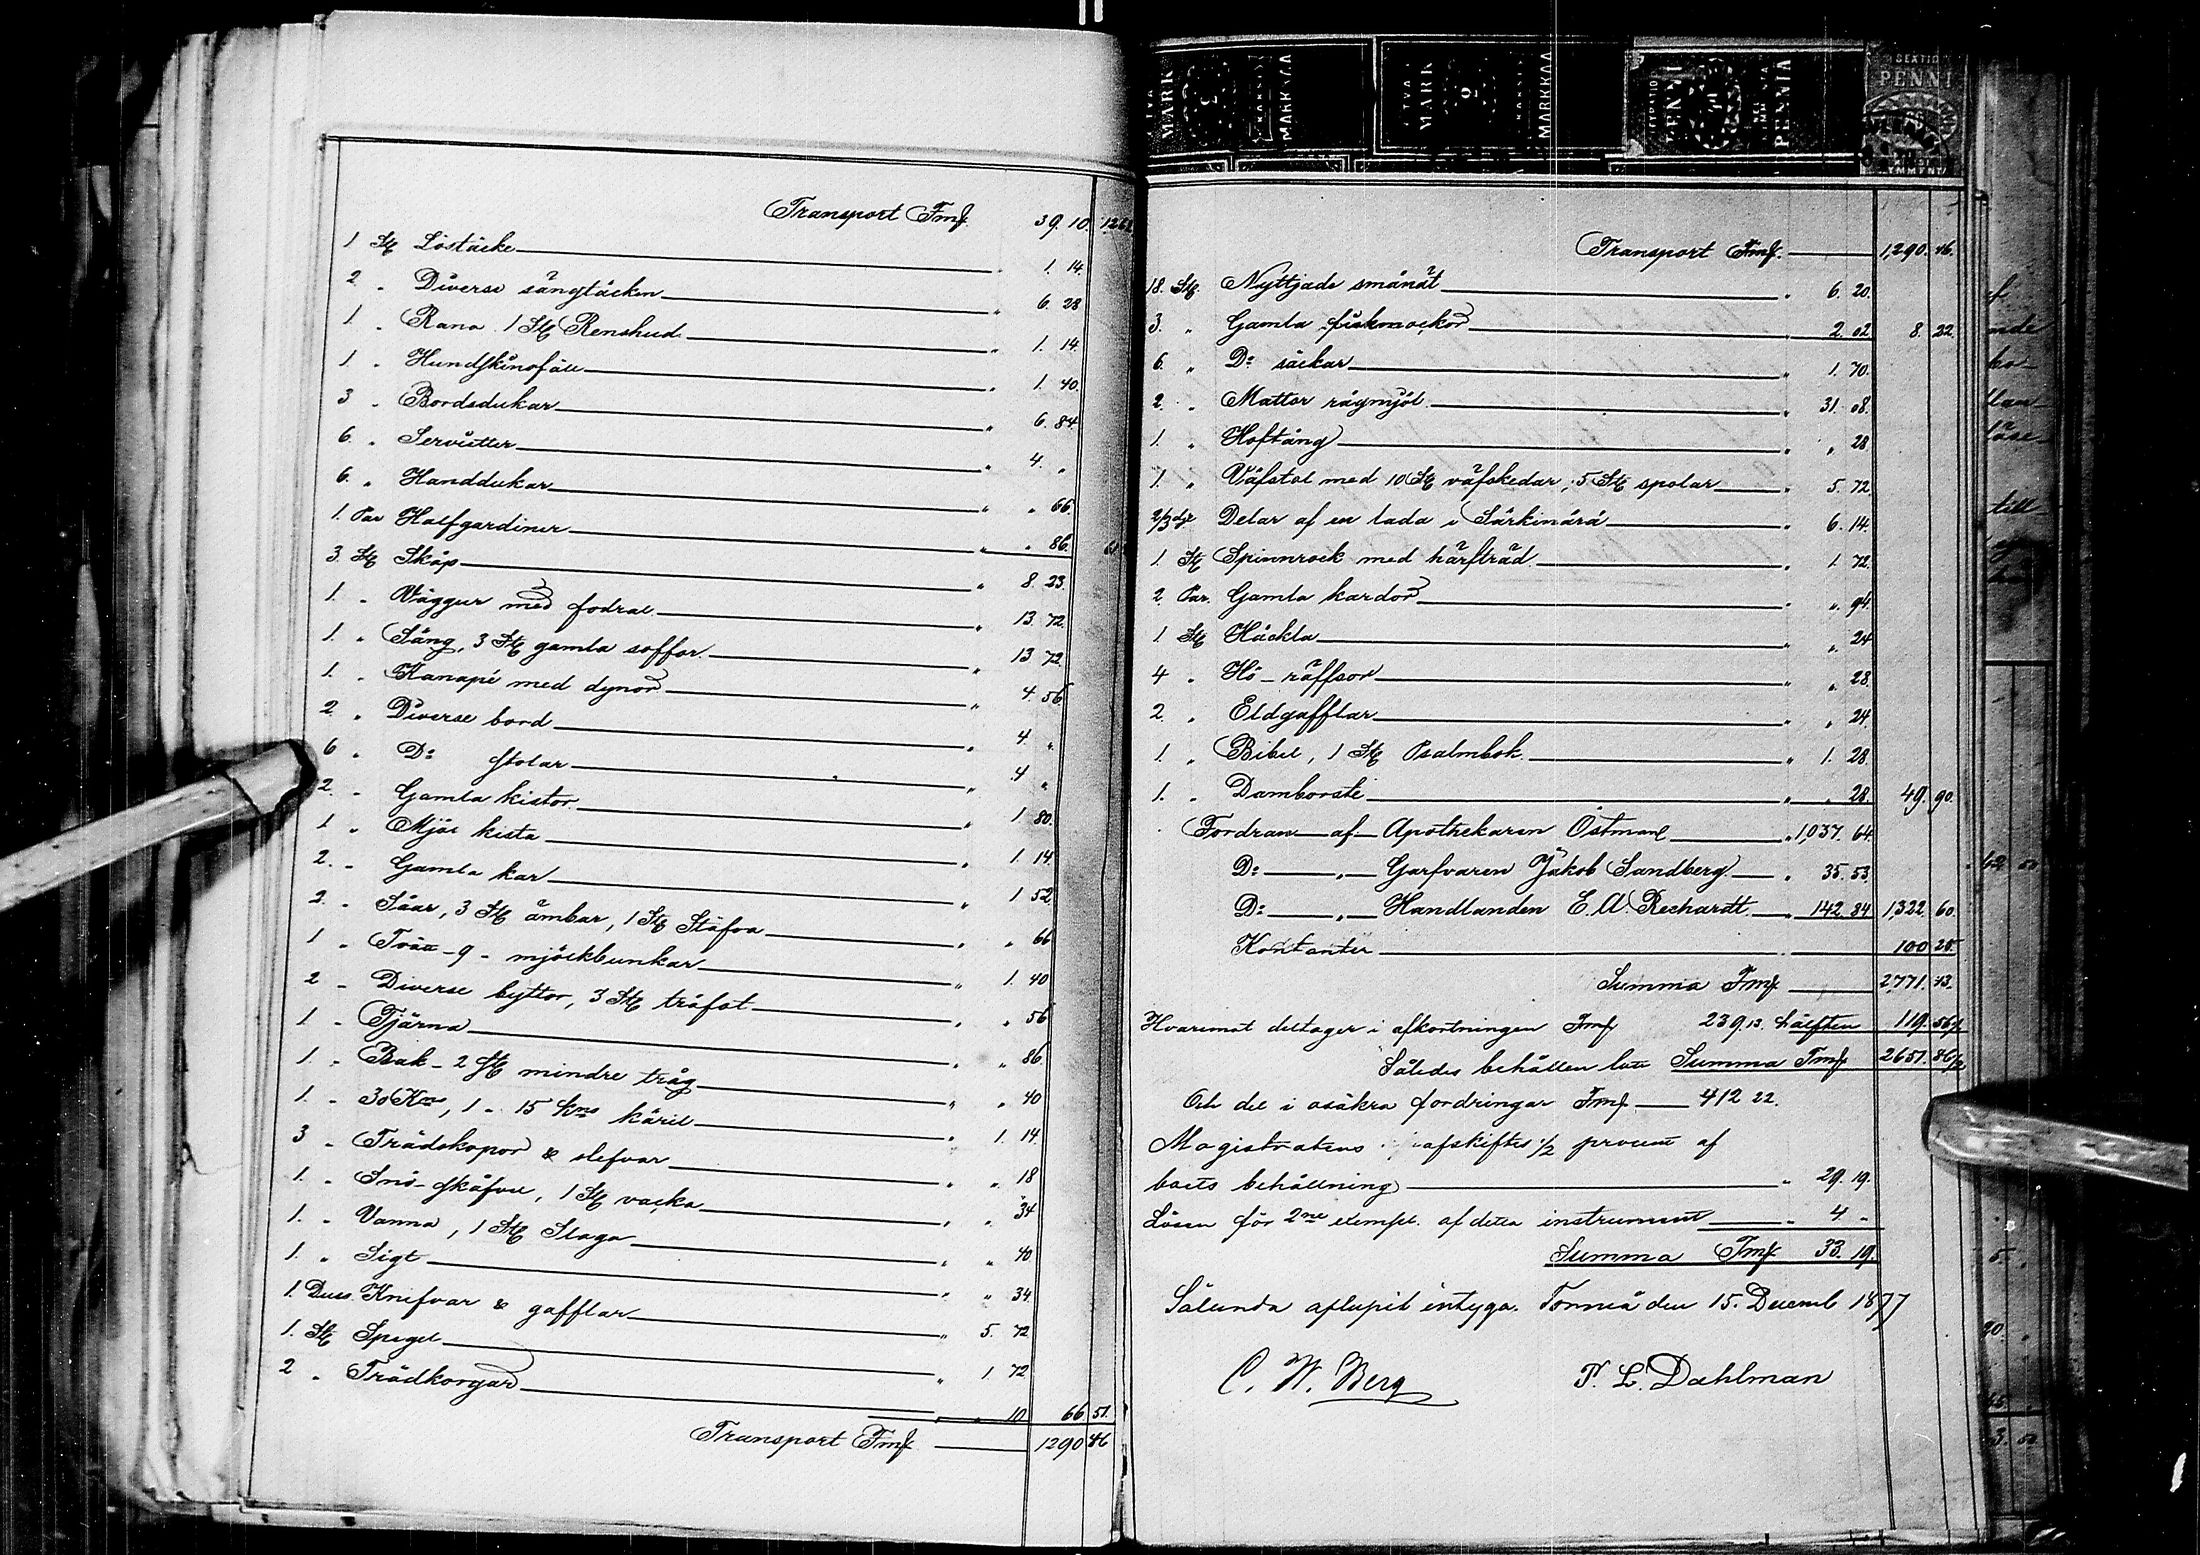 Transport Fmk 39. 10. 1261
1 St Löstäcke " 1. 14.
2 " Diverse sängtäcken " 6. 28
1. " Rana 1 St Renshud " 1. 14.
1. " Hundskinsfäll " 1. 40.
3 " Bordsdukar " 6. 84.
6. " Servietter " 4. "
6. " Handdukar " " 66.
1. Par Halfgardiner " " 86. 61
3. St Skåp " 8. 23.
1. " Väggur med fodral " 13. 72.
1. " Säng, 3 St gamla soffor " 13 72
1. " Kanapé med dynor " 4. 56
2. " Diverse bord " 4 "
6 " Do stolar " 4 "
2. " Gamla kistor " 1 80.
1 " Mjöl kista " 1. 14.
2. " Gamla kar " 1 52.
2. " Såar, 3 St ämbar, 1 St Stäfva " " 66
1 " Tvål - 9 - mjölkbunkar " 1. 40
2 " Diverse byttor, 3 St träfat " " 56
1. " Tjärna " " 86.
1. " Bak - 2 St mindre tråg " " 40
1. " 30 Kns, 1 " 15 kns käril " 1. 14
3 " Trädskopor & slefvar " " 18
1. " Snö-skåfvel, 1 St vacka " " 34
1. " Vanna, 1 St Slaga " " 40
1. " Sigt " " 34
1. Duss. Knifvar & gafflar " 5. 72
1. St Spegel " 1 72
2 " Trädkorgar " " 10 66 51.
Transport Fmk 1290 46
SEXTIO
PENNI
MARK
MARKKAA
MARK
MARKKAA
PENNI
PENNIÄ
Transport Fmk. 1,290. 46.
18. St. Nyttjade smånät " 6. 20.
3. " Gamla fiskmockor " 2. 02 8. 22
6. " Do säckar " 1. 70.
2. " Mattor rågmjöl " 31. 08.
1. " Hoftång " " 28
1. " Väfstol med 10 St väfskedar, 5 St spolar " 5. 72
2/3 dl Delar af en lada i Särkinärä " 6. 14.
1 St Spinnrock med härfträd " 1 72.
2. Par. Gamla kardor " " 94.
1 St Häckla " " 24
4 " Hö-räffsor " " 28.
2. " Eldgafflar " " 24.
1. " Bibel, 1 St Psalmbok " 1. 28.
1. " Damborste " " 28. 49. 90.
Fordran af Apothekaren Östman " 1,037. 64.
Do " Garfvaren Jakob Sandberg " 35. 53.
Do " Handlanden E. A. Rechardt " 142. 84 1,322. 60.
Kontanter " 100 25
Summa Fmk 2,771. 43.
Hvarimot deltager i afkortningen Fmk 239. 13. hälften 119. 56½
Således behållen lott Summa Fmk 2651. 86½
Och del i osäkra fordringar Fmk 412 22.
Magistratens afskiftes ½ procent af
boets behållning " 29. 19.
Lösen för 2ne exempl. af detta instrument " 4 "
Summa Fmk 33. 19.
Sålunda aflupit intyga. Torneå den 15. Decemb 1877
C. W. Berg P. L. Dahlman